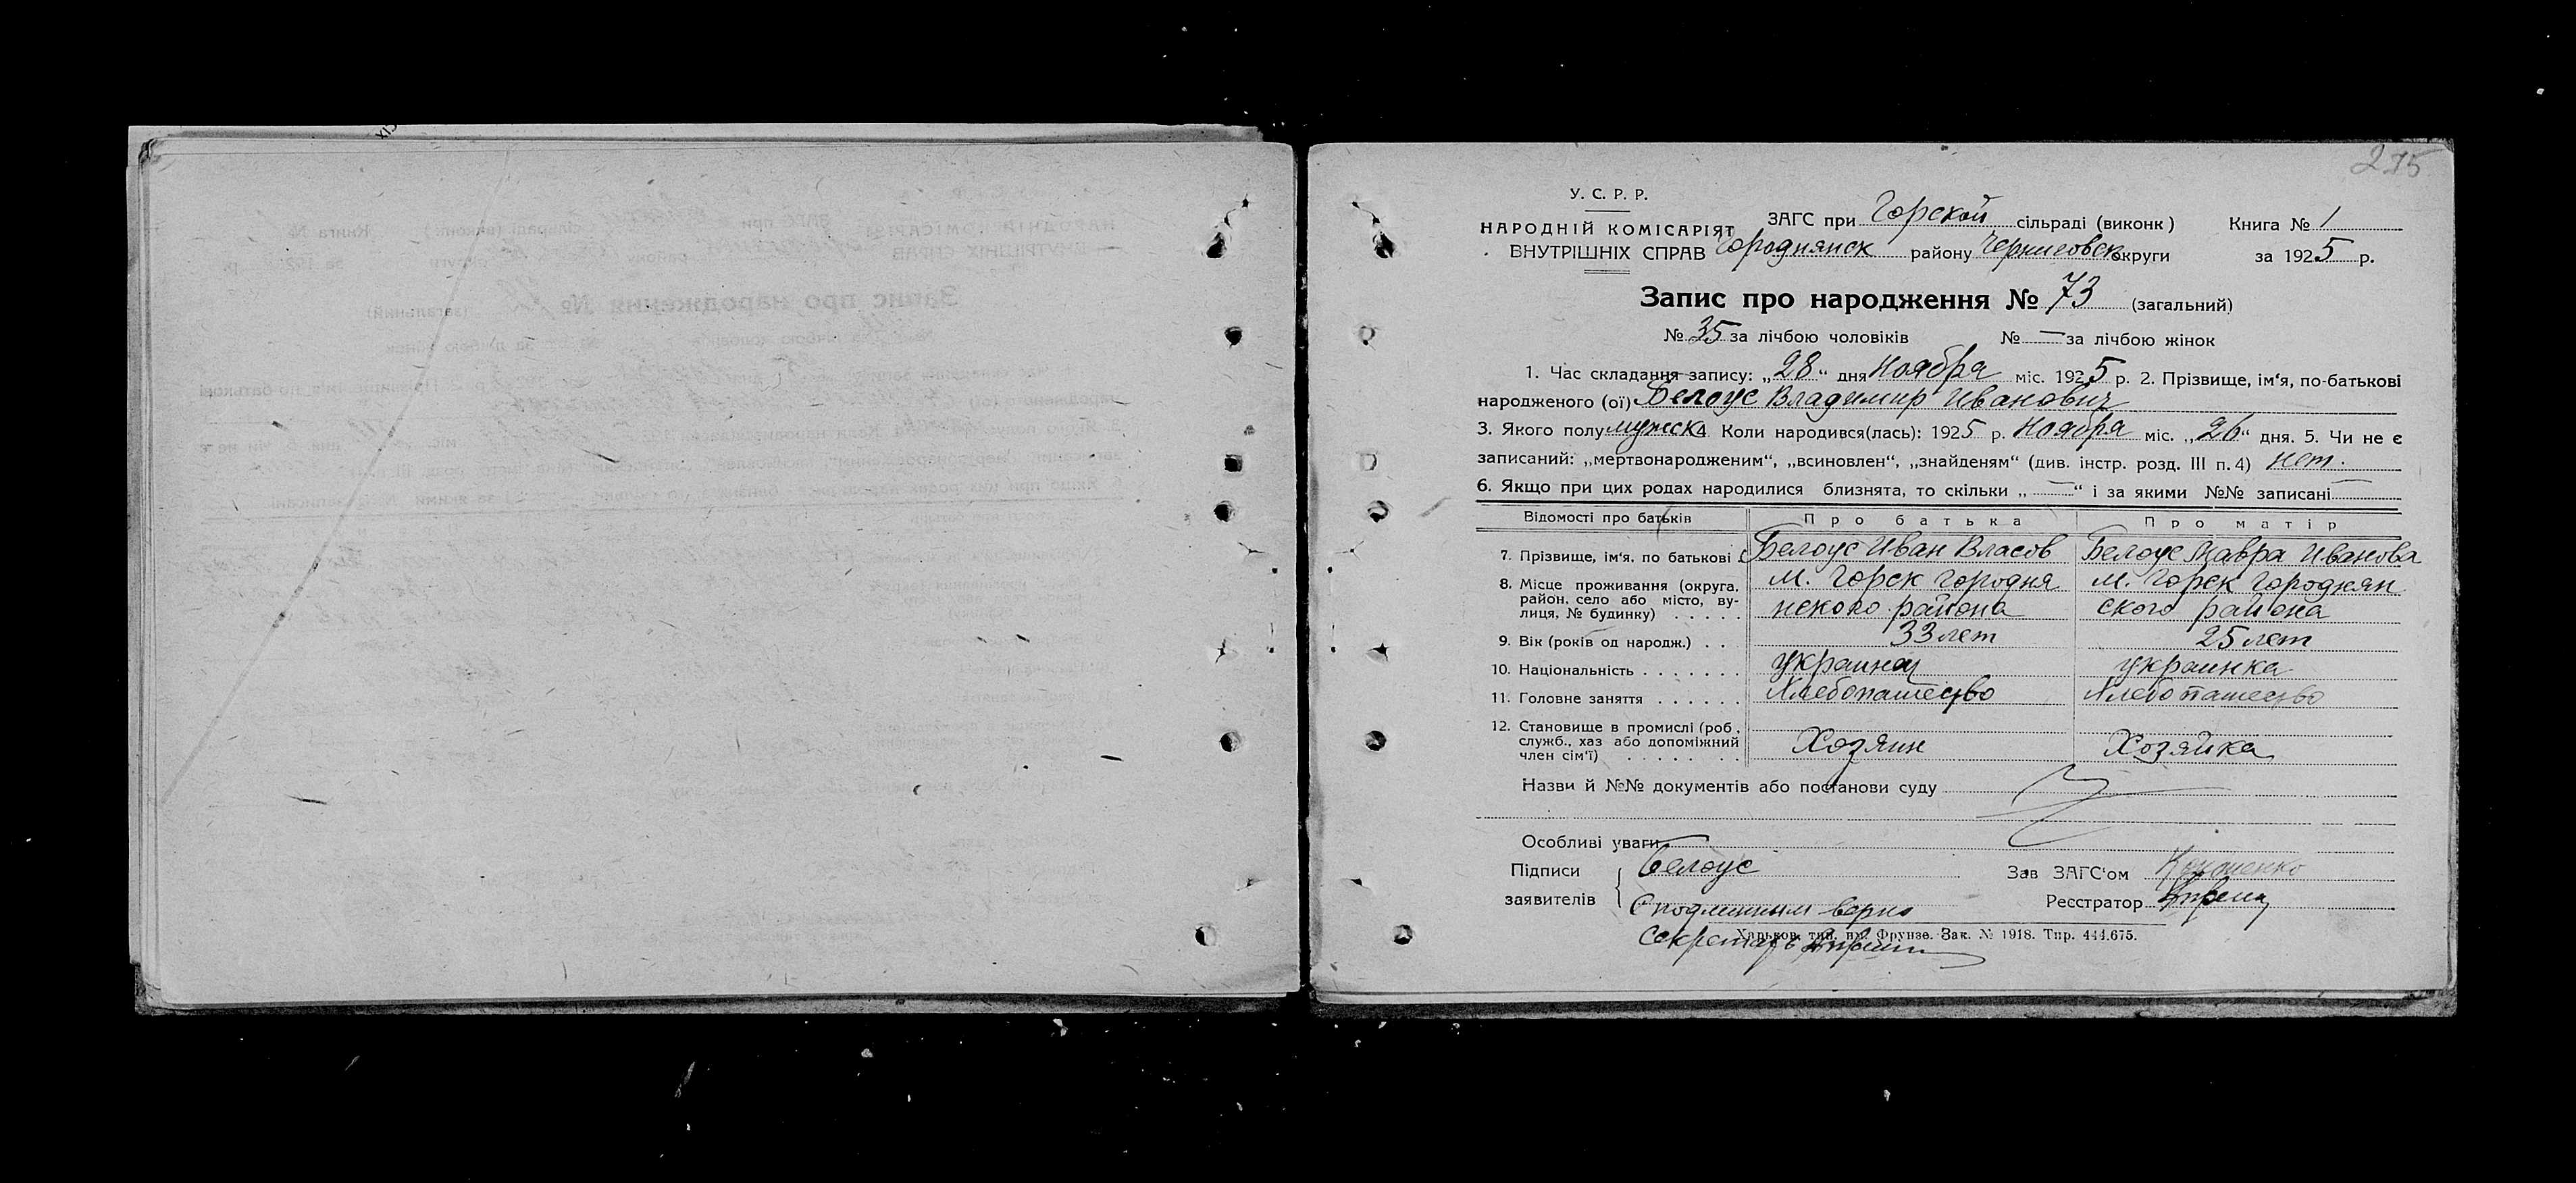 275
У. С. Р. Р.
НАРОДНІЙ КОМІСАРІЯТ
ВНУТРІШНІХ СПРАВ
ЗАГС при Горской сільраді (виконк) Книга № 1
Городнянск району Черниговск округи за 1925 р.
Запис про народження № 73 (загальний)
№ 35 за лічбою чоловіків № — за лічбою жінок
1. Час складання запису: „28“ дня Ноября міс. 1925 р. 2. Прізвище, ім‘я, по-батькові
народженого (ої) Белоус Владимир Иванович
3. Якого полу мужск 4. Коли народився(лась): 1925 р. Ноября міс. „26“ дня. 5. Чи не є
записаний: „мертвонародженим“, „всиновлен“, „знайденям“ (див. інстр. розд. III п. 4) нет.
6. Якщо при цих родах народилися близнята, то скільки „—“ і за якими №№ записані —
Відомості про батьків Про батька Про матір
7. Прізвище, ім‘я. по батькові Белоус Иван Власов Белоус Мавра Иванова
8. Місце проживання (округа, район, село або місто, ву-лиця, № будинку) . . . . .
м. Горск Городня м. Горск Городнян
нского района ского района
9. Вік (років од народж.) . . 33 лет 25 лет
10. Національність . . . . . . . украинец украинка
11. Головне заняття . . . . . . Хлебопашество Хлебопашество
12. Становище в промислі (роб, служб., хаз або допоміжний член сім‘ї) . . . . . . . . Хозяин Хозяйка
Назви й №№ документів або постанови суду
Особливі уваги
Підписи заявителів Белоус
Зав ЗАГС‘ом
Реєстратор
С подлинным верно
Харьков, тип. ім. Фрунзе. Зак. № 1918. Тир. 444.675.
Секретарь